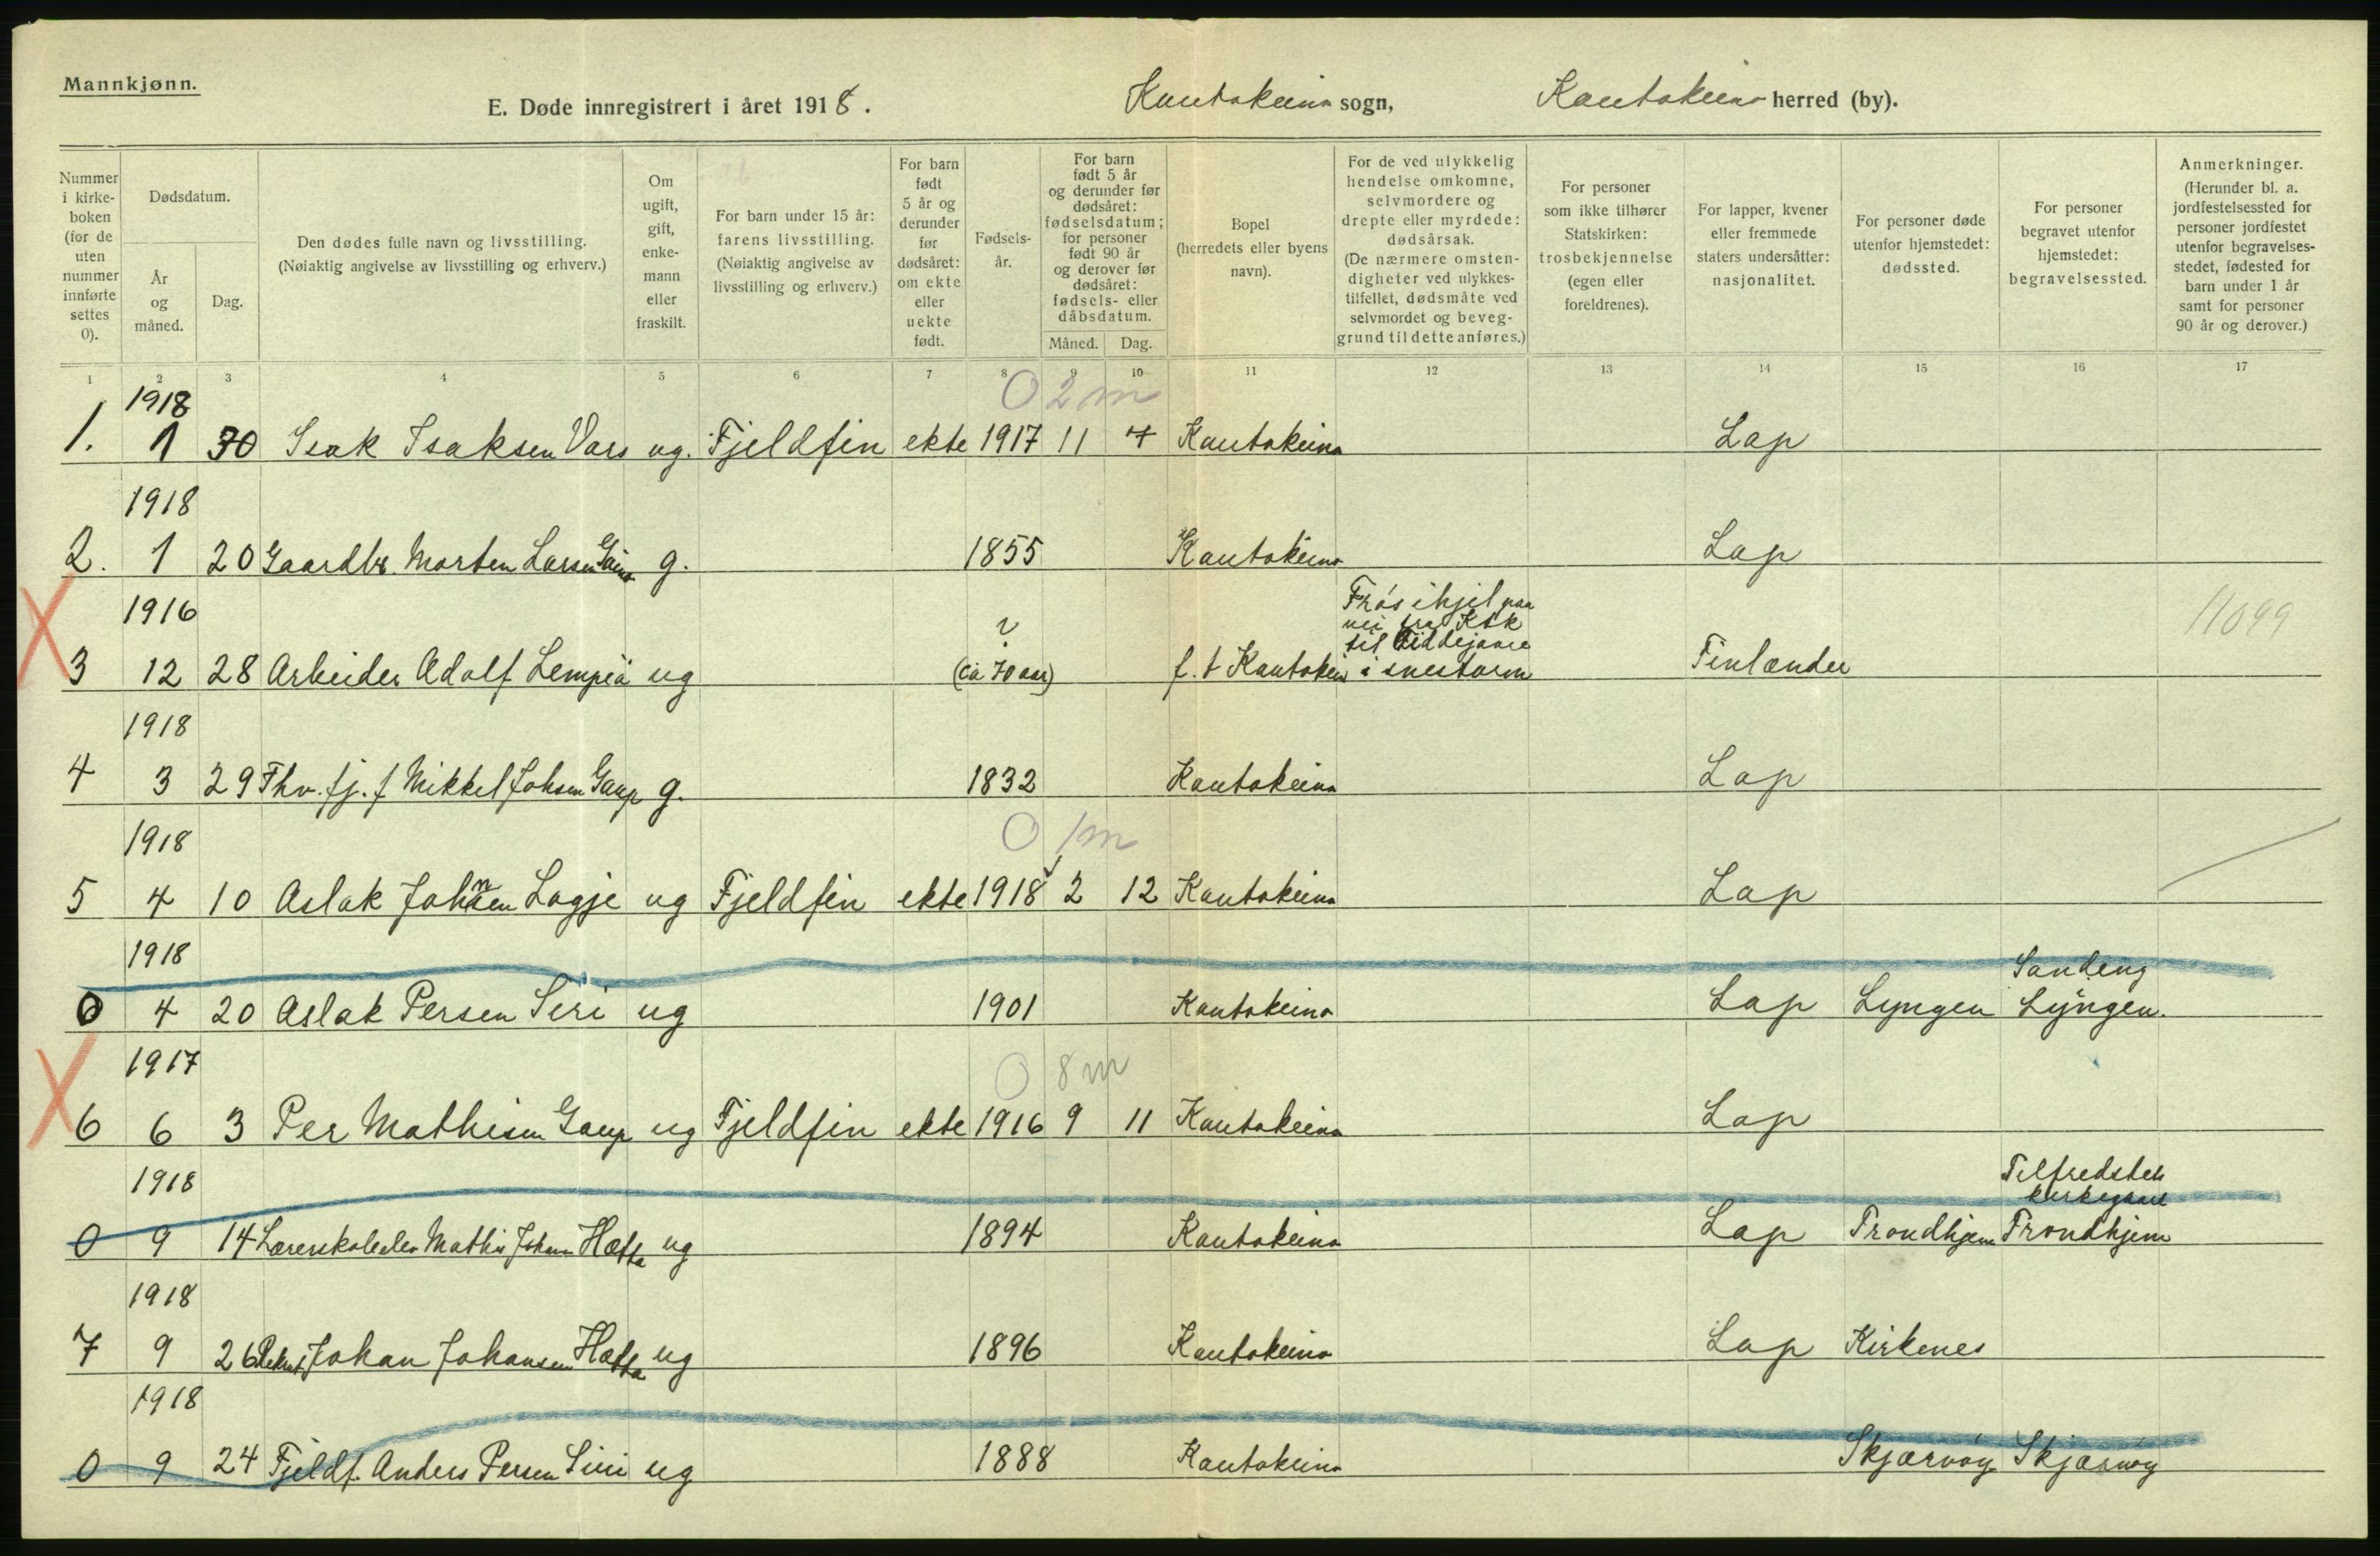 Mannkjønn.
E. Døde innregistrert i året 1918. Kautokeino sogn, Kautokeino herred (by).
Nummer i kirke-boken (for de uten nummer innførte settes 0).
Dødsdatum.
År og måned.
Dag.
Den dødes fulle navn og livsstilling.
(Nøiaktig angivelse av livsstilling og erhverv.)
Om ugift, gift, enke-mann eller fraskilt.
For barn under 15 år: farens livsstilling.
(Nøiaktig angivelse av livsstilling og erhverv.)
For barn født 5 år og derunder før dødsåret: om ekte eller uekte født.
Fødsels-år.
For barn født 5 år og derunder før dødsåret: fødselsdatum; for personer født 90 år og derover før dødsåret: fødsels- eller dåbsdatum.
Måned. Dag.
Bopel (herredets eller byens navn).
For de ved ulykkelig hendelse omkomne, selvmordere og drepte eller myrdede: dødsårsak.
(De nærmere omsten-digheter ved ulykkes-tilfellet, dødsmåte ved selvmordet og beveg-grund til dette anføres.)
For personer som ikke tilhører Statskirken: trosbekjennelse (egen eller foreldrenes).
For lapper, kvener eller fremmede staters undersåtter: nasjonalitet.
For personer døde utenfor hjemstedet: dødssted.
For personer begravet utenfor hjemstedet: begravelsessted.
Anmerkninger.
(Herunder bl. a. jordfestelsessted for personer jordfestet utenfor begravelses-stedet, fødested for barn under 1 år samt for personer 90 år og derover.)
1 2 3 4 5 6 7 8 9 10 11 12 13 14 15 16 17
1918 0 2 m
1. 1 30 Isak Isaksen Vars ug. Fjeldfin ekte 1917 11 4 Kautokeino Lap
1918
2. 1 20 Gaardbr. Morten Larsen Gaino g. 1855 Kautokeino Lap
1916 ? Frøs ihjel paa
vei fra Ktk
til
11099
3 12 28 Arbeider Adolf Lempiä ug (ca 70 aar) f. t Kautokein i snestorm Finlænder
1918
4 3 29 Fhv. fj. f Mikkel Johsen Gaup g. 1832 Kautokeino Lap
1918 0 1 m
5 4 10 Aslak Johnsen Logje ug Fjeldfin ekte 1918 2 12 Kautokeino Lap
1918 Sandeng
0 4 20 Aslak Persen Siri ug 1901 Kautokeino Lap Lyngen Lyngen.
1917 0 8 m
6 6 3 Per Mathisen Gaup ug Fjeldfin ekte 1916 9 11 Kautokeino Lap
1918 Tilfredshets
kirkegaard
0 9 14 Lærerskoleelev Mathis Johan Hætta ug 1894 Kautokeino Lap Trondhjem Trondhjem
1918
7 9 26 Rekrut Johan Johansen Hætta ug 1896 Kautokeino Lap Kirkenes
1918
0 9 24 Fjeldf. Anders Persen Siri ug 1888 Kautokeino Skjærvøy Skjærvøy